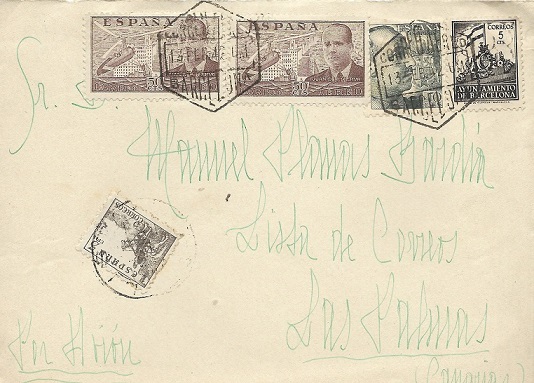 ESPAÑA ESPAÑA CORREOS
5 CTS.
AYUNTAMIENTO DE BARCELONA
BARCELONA
Sr. D.
Manuel Planas
Lista de Correos
Las Palmas
(Canarias)
ESPAÑA
Por Avión